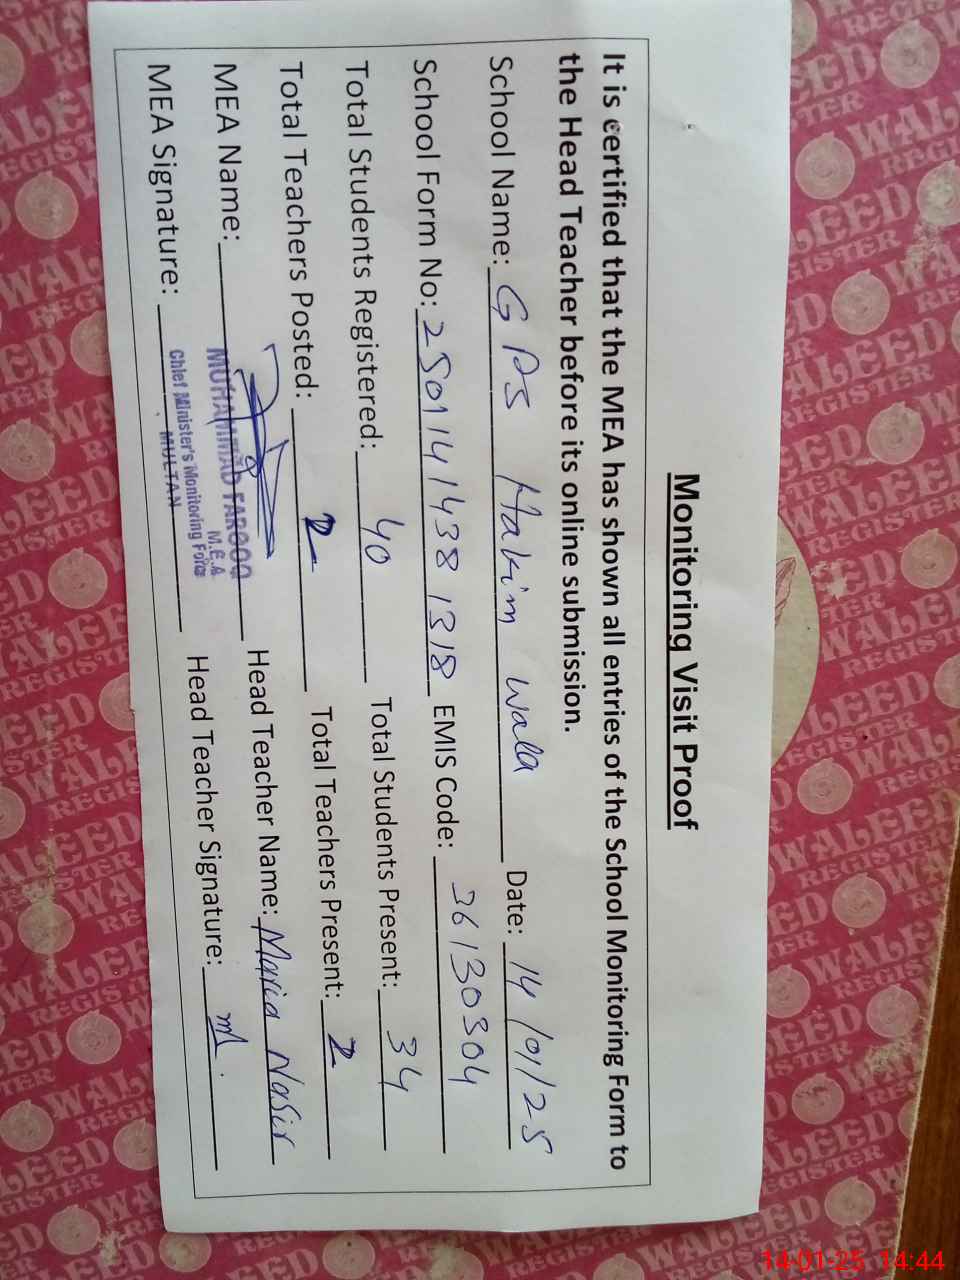 Monitoring Visit Proof
It is certified that the MEA has shown all entries of the School Monitoring Form to
the Head Teacher before its online submission.
School Name: GPS Hakim walla Date: 14/01/25
School Form No: 25011414381318 EMIS Code: 36130304
Total Students Registered: 40 Total Students Present: 34
Total Teachers Posted: 2 Total Teachers Present: 2
MEA Name: MUHAMMAD FAROOQ Head Teacher Name: Maria Nasir
M.E.A
MEA Signature: Chief Minister's Monitoring Force Head Teacher Signature:
MULTAN
WALEED
REGISTER
14-01-25 14:44